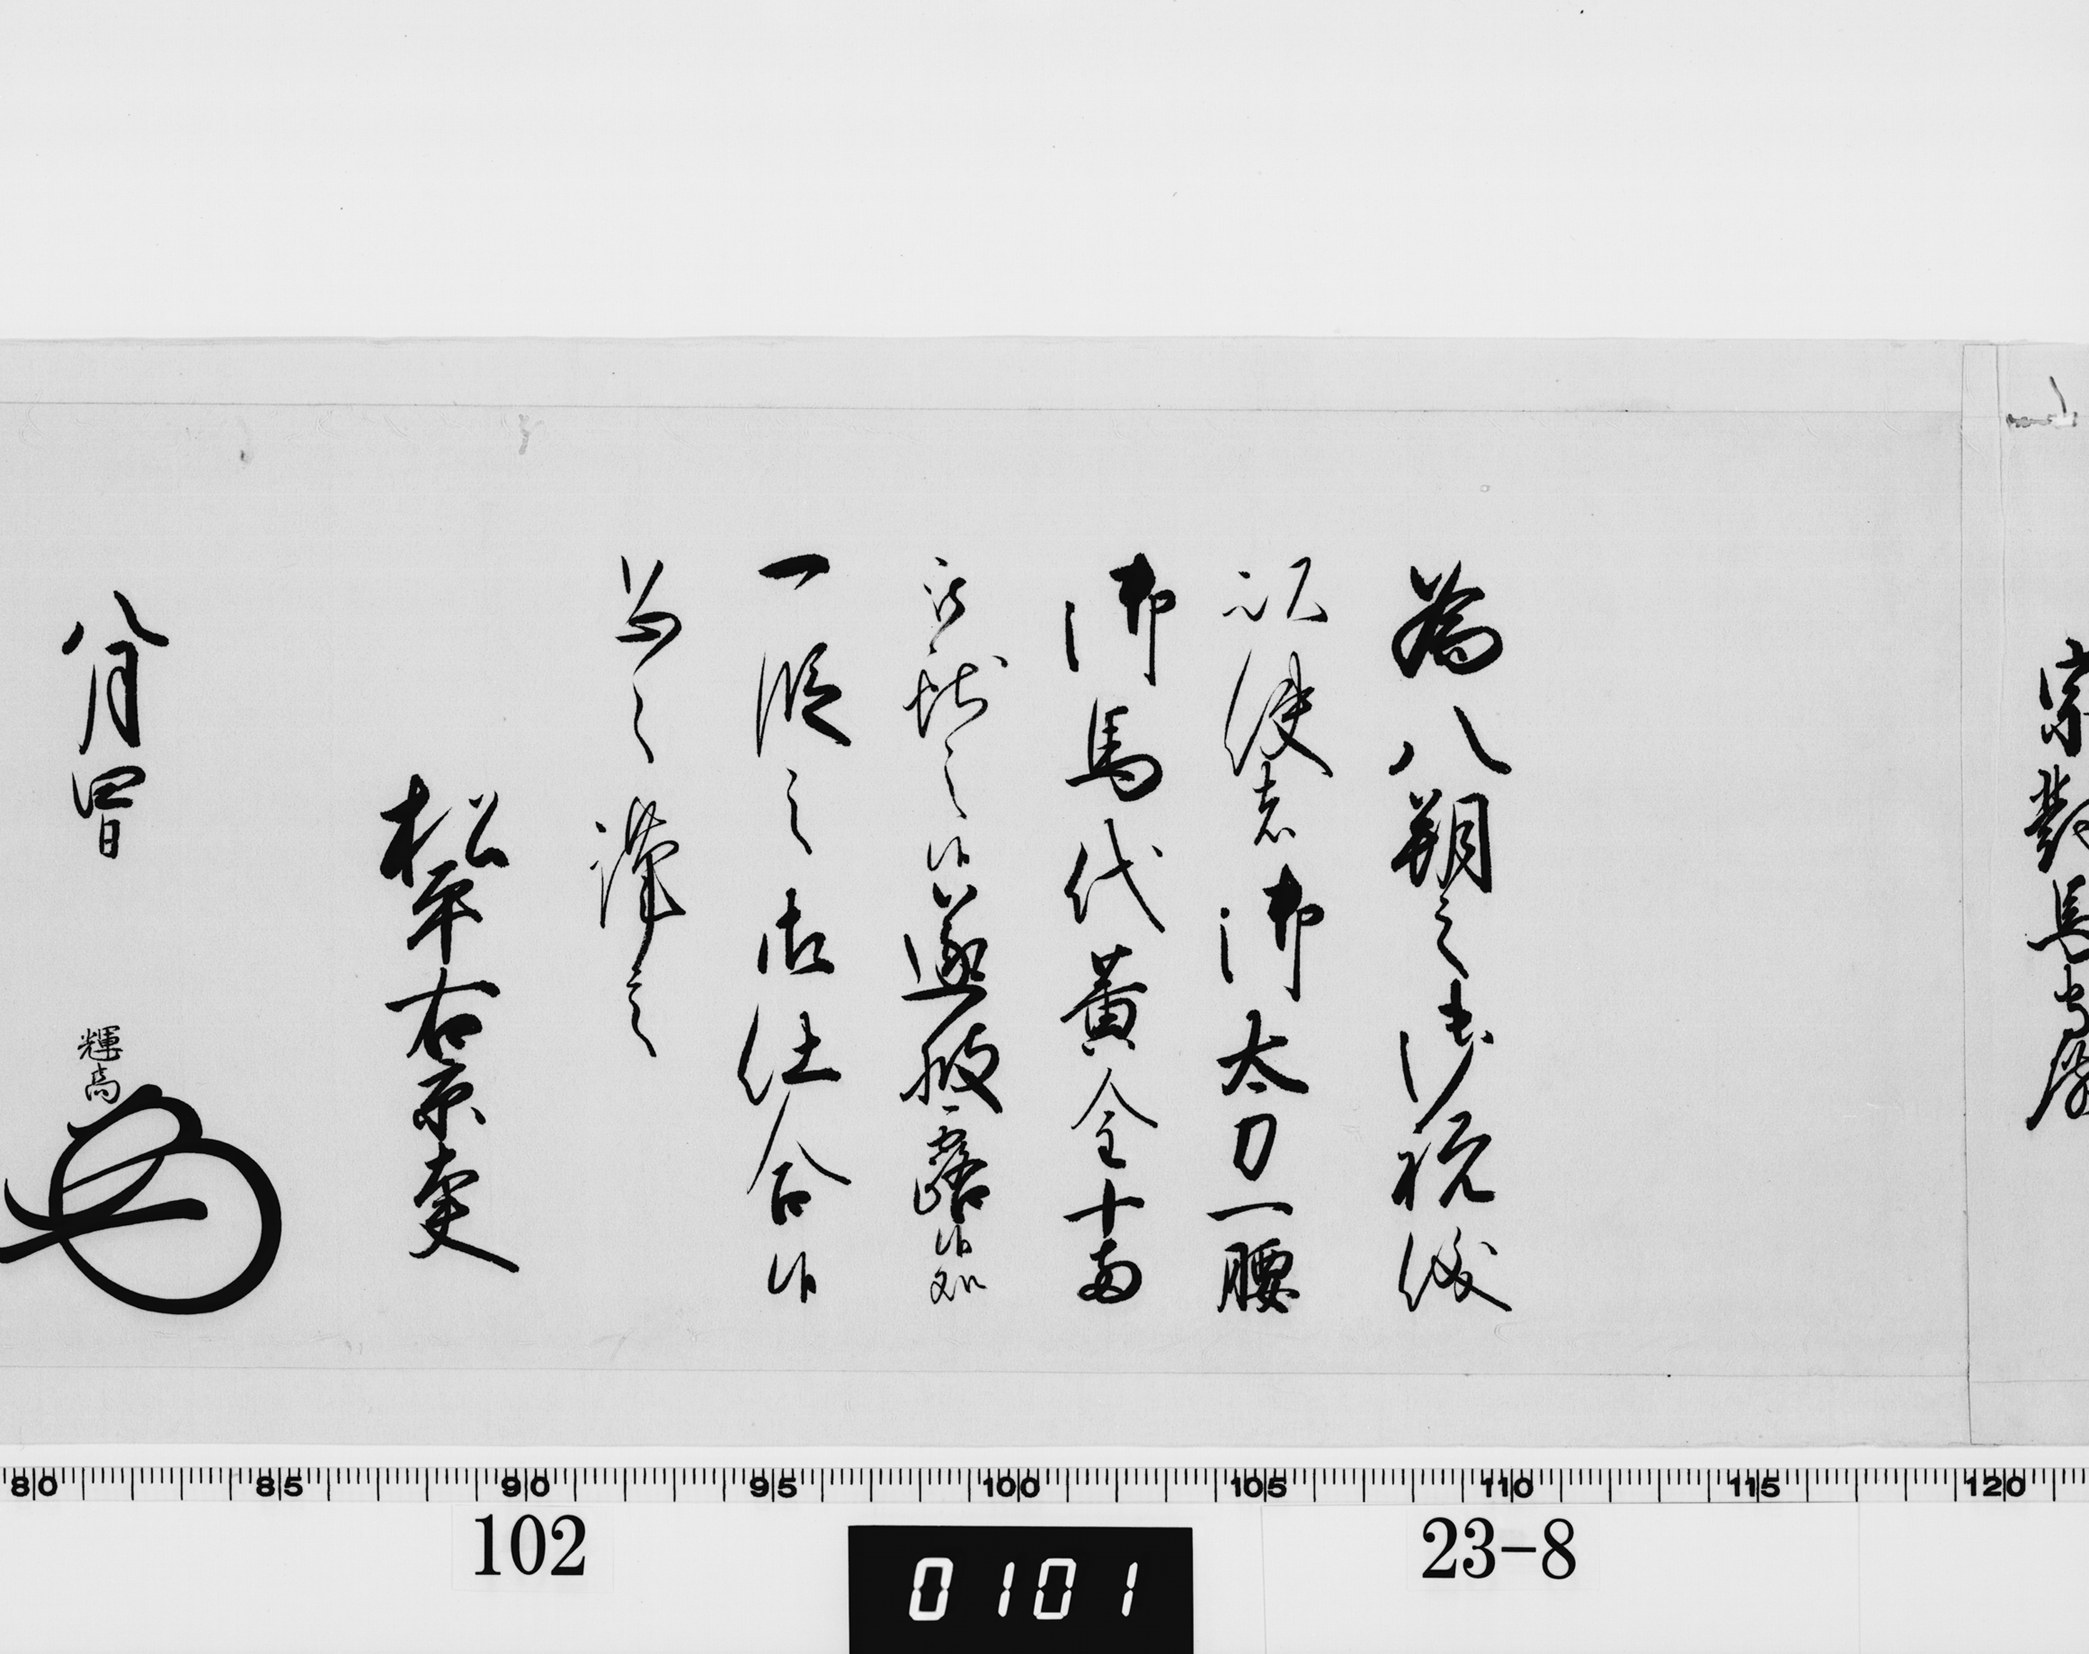 宗對馬守殿
為八朔之御祝儀
以使者御太刀一腰
御馬代黄金十両
被獻之候遂披露候処
一段之御仕合候
恐々謹言
松平右京大夫
八月四日
輝高
80 85 90 95 100 105 110 115 120
102
0101
23-8